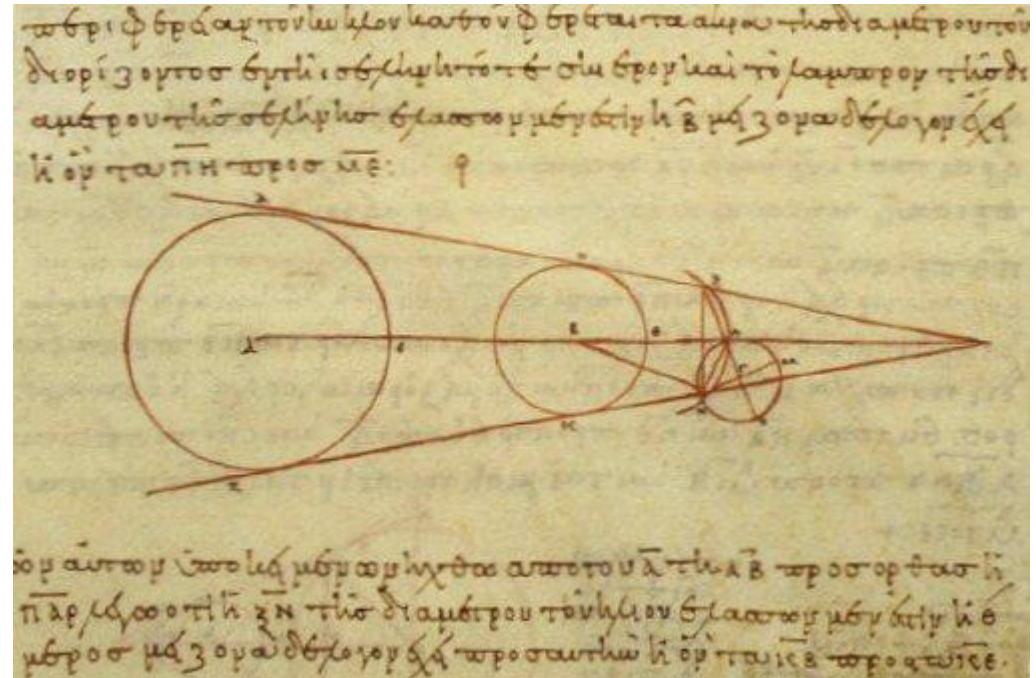 τὸν κύκλον καθ' ὃν φέρεται τὰ ἄκρα τῆς διαμέτρου τοῦ
διορίζοντος ἐν τῇ σελήνῃ τό τε σκιερὸν καὶ τὸ λαμπρὸν τῆς δι
αμέτρου τῆς σελήνης ἐλάσσων μέν ἐστιν ἢ β̅ μείζονα δὲ λόγον ἔχει
ἢ ὃν τὰ π̅η̅ πρὸς μ̅ε̅:
αὐτῶν ὑποκειμένων ἤχθω ἀπὸ τοῦ Α̅ τῇ Α̅Β̅ πρὸς ὀρθὰς ἡ
Π̅Α̅Ρ̅ λέγω ὅτι ἡ Ξ̅Ν̅ τῆς διαμέτρου τοῦ ἡλίου ἐλάσσων μέν ἐστιν ἢ θ
μέρος μείζονα δὲ λόγον ἔχει πρὸς αὐτὴν ἢ ὃν τὰ πρὸς